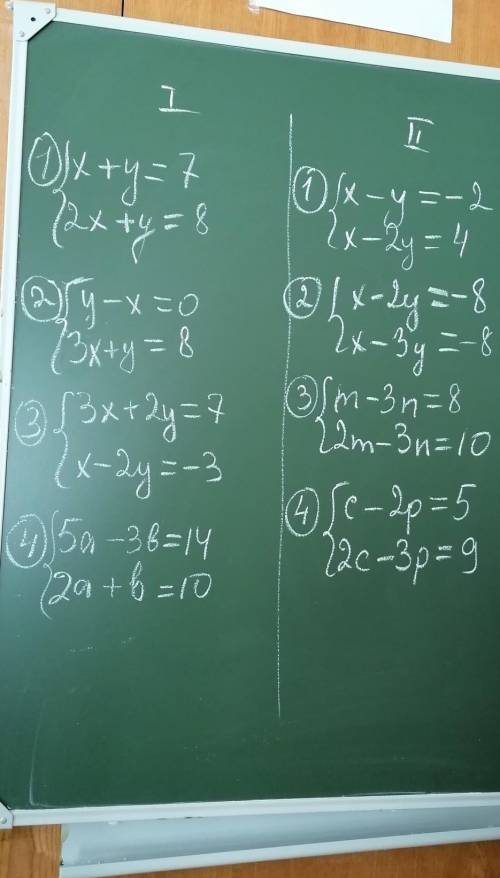 I
① { x + y = 7
2x + y = 8
② { y - x = 0
3x + y = 8
③ { 3x + 2y = 7
x - 2y = -3
④ { 5a - 3b = 14
2a + b = 10
II
① { x - y = -2
x - 2y = 4
② { x - 2y = -8
x - 3y = -8
③ { m - 3n = 8
2m - 3n = 10
④ { c - 2p = 5
2c - 3p = 9